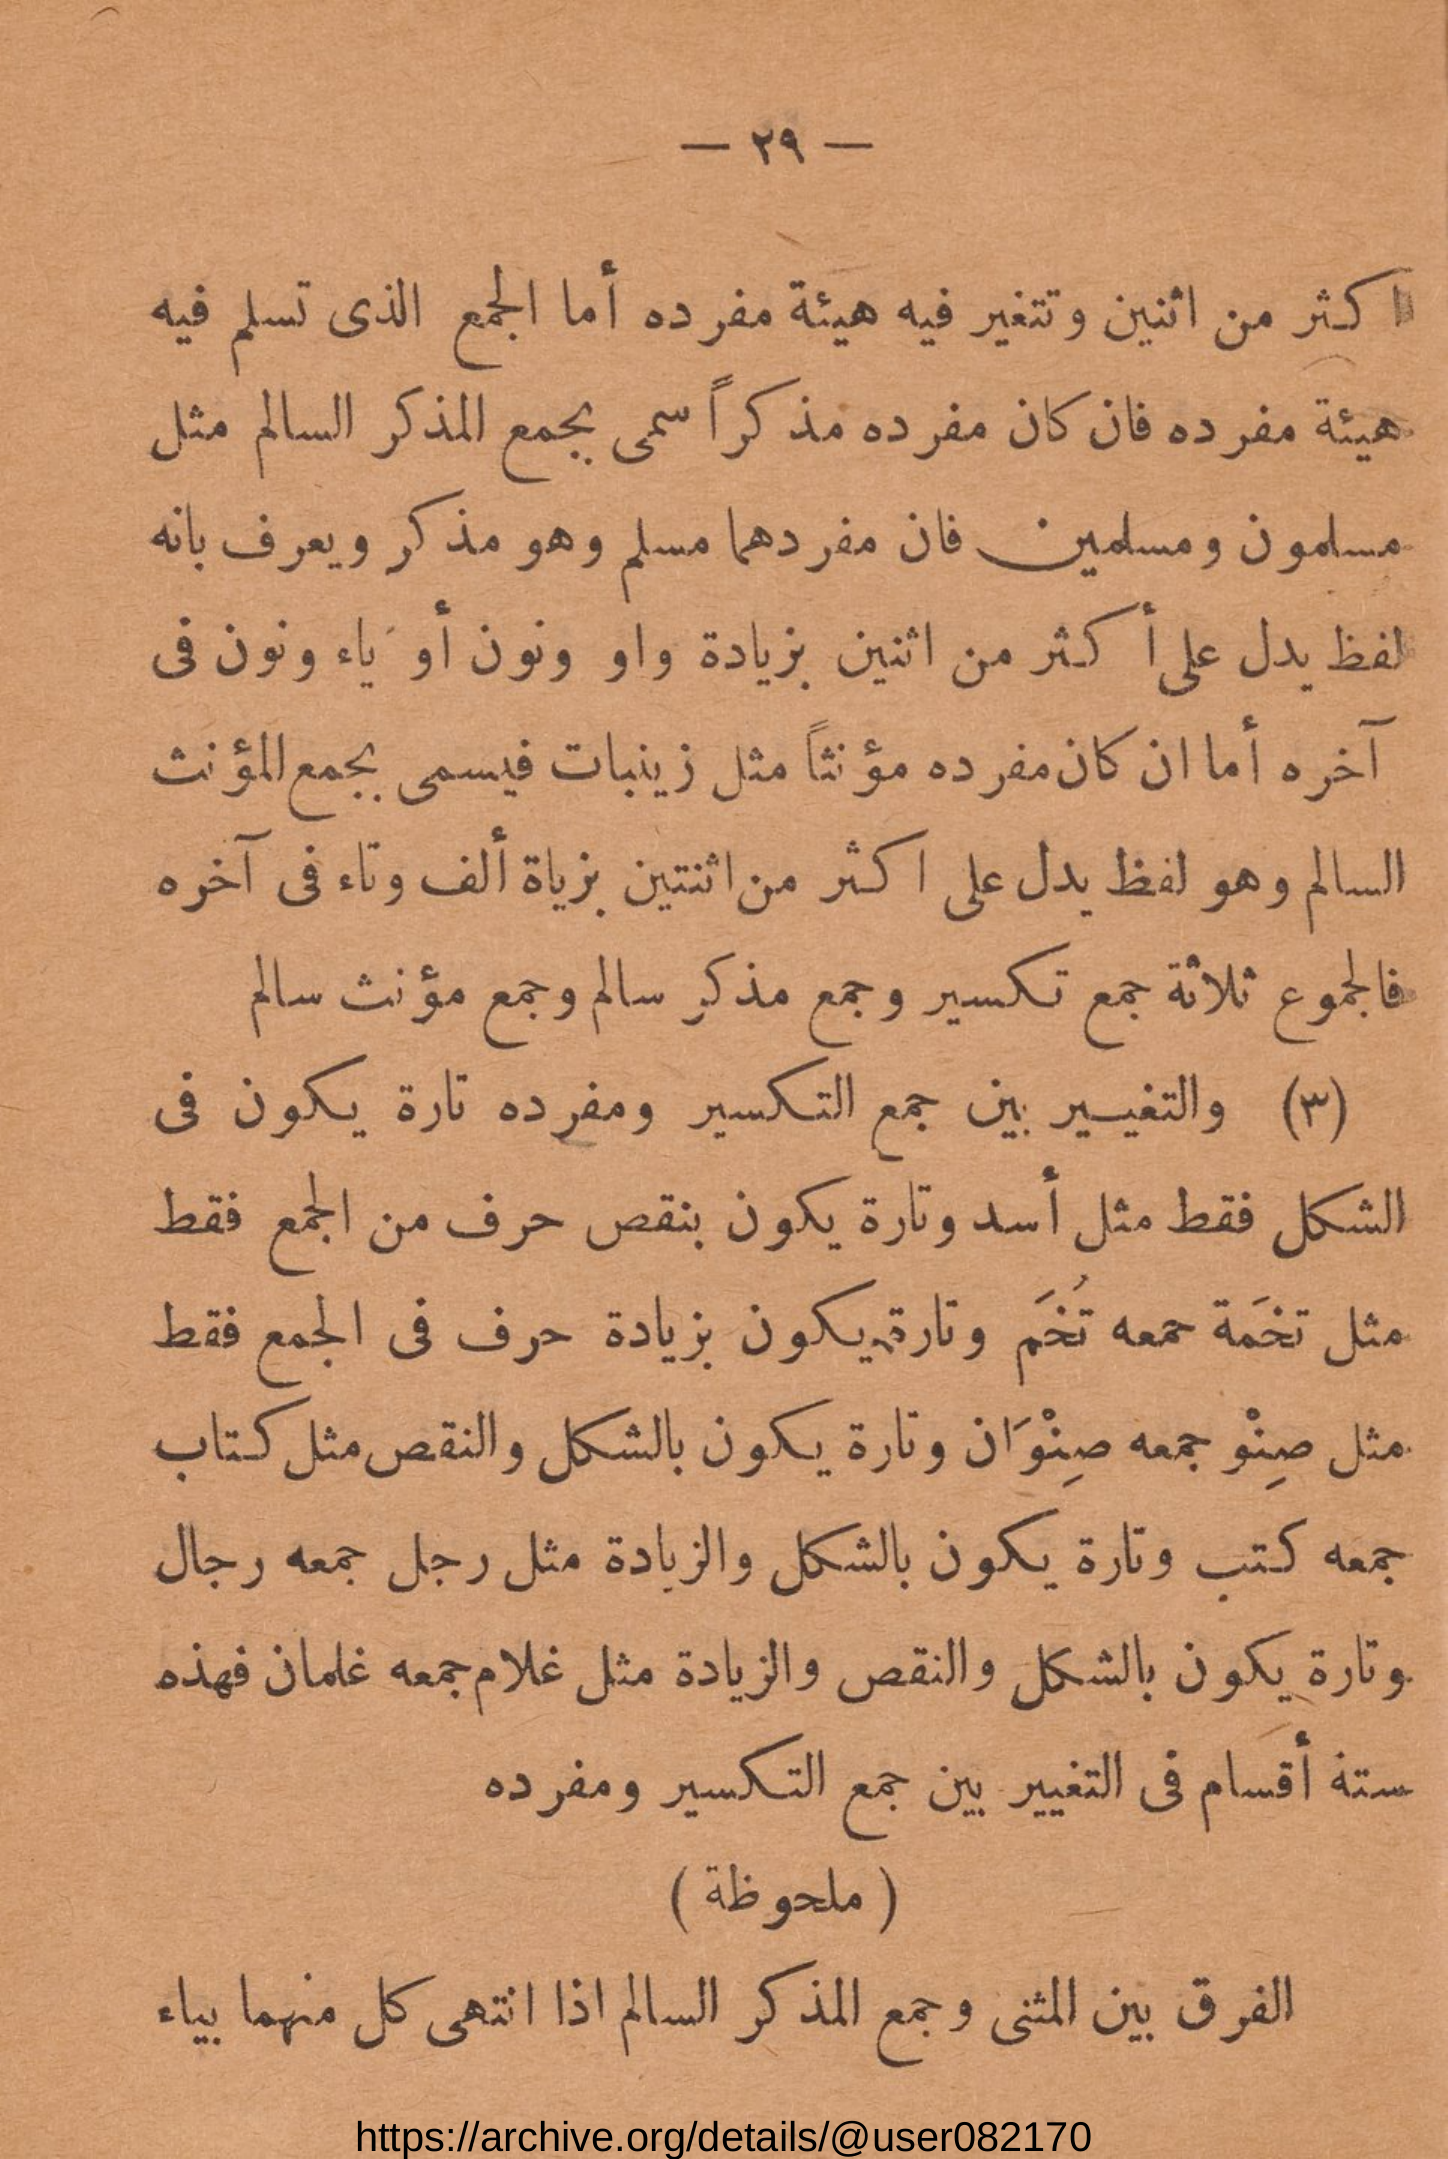 — ٢٩ —
اكثر من اثنين وتتغير فيه هيئة مفرده أما الجمع الذى تسلم فيه
هيئة مفرده فان كان مفرده مذكراً سمى بجمع المذكر السالم مثل
مسلمون ومسلمين فان مفردهما مسلم وهو مذكر ويعرف بانه
لفظ يدل على أكثر من اثنين بزيادة واو ونون أو ياء ونون فى
آخره أما ان كان مفرده مؤنثاً مثل زينبات فيسمى بجمع المؤنث
السالم وهو لفظ يدل على اكثر من اثنتين بزياة ألف وتاء فى آخره
فالجموع ثلاثة جمع تكسير وجمع مذكر سالم وجمع مؤنث سالم
(٣) والتغيير بين جمع التكسير ومفرده تارة يكون فى
الشكل فقط مثل أسد وتارة يكون بنقص حرف من الجمع فقط
مثل تخَمة جمعه تُخَم وتارة يكون بزيادة حرف فى الجمع فقط
مثل صِنْو جمعه صِنْوَان وتارة يكون بالشكل والنقص مثل كتاب
جمعه كتب وتارة يكون بالشكل والزيادة مثل رجل جمعه رجال
وتارة يكون بالشكل والنقص والزيادة مثل غلام جمعه غلمان فهذه
ستة أقسام فى التغيير بين جمع التكسير ومفرده
( ملحوظة )
الفرق بين المثنى وجمع المذكر السالم اذا انتهى كل منهما بياء
https://archive.org/details/@user082170